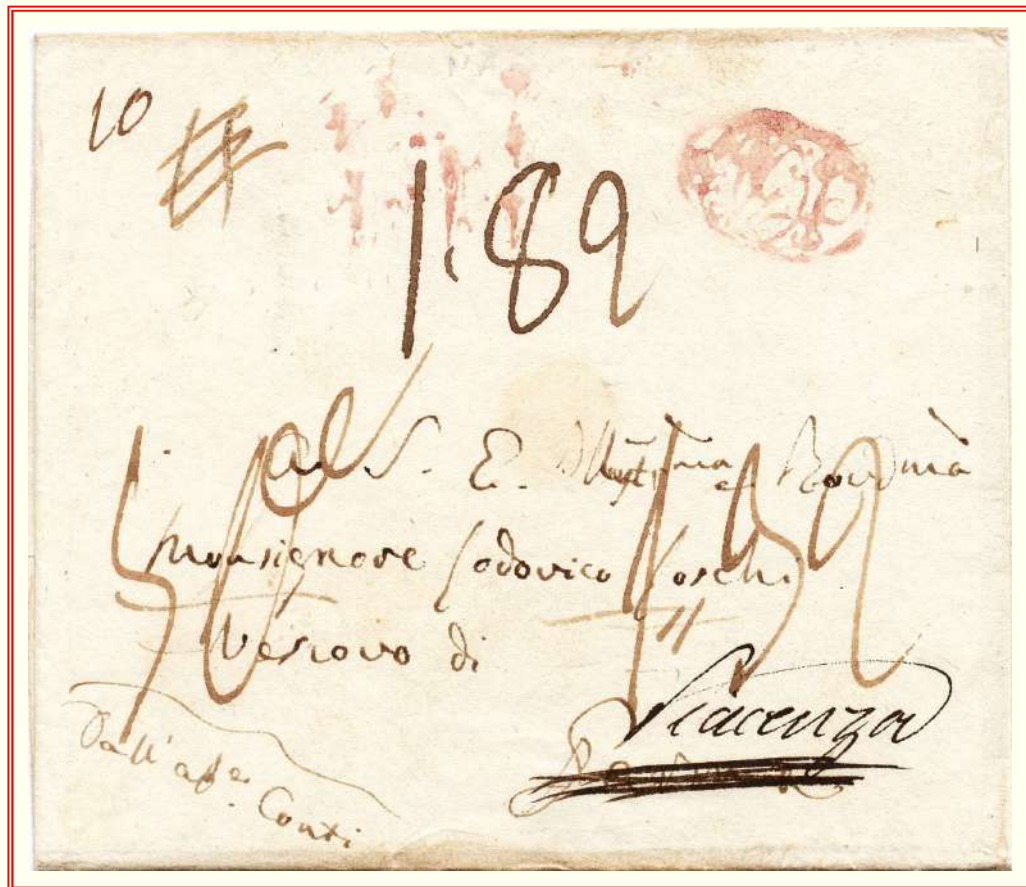 10
1.89
a S. E. Illustma e Revdma
Monsignore Lodovico Loschi
Vescovo di
Piacenza
Dall' abe. Conti